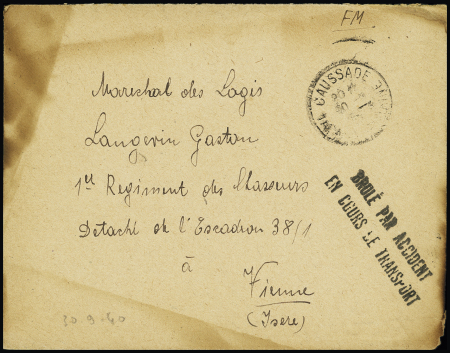 FM.
CAUSSADE
Marechal des Logis
Langevin Gaston
1er Regiment des Chasseurs
Detaché de l'Escadron 38/1
à
Vienne
(Isere)
BRÛLÉ PAR ACCIDENT
EN COURS DE TRANSPORT
30 9-40